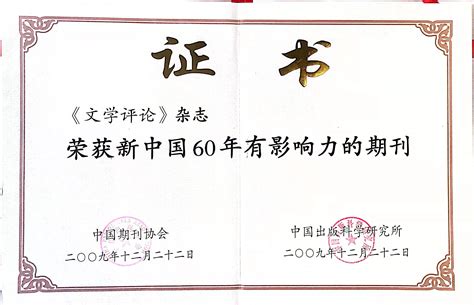 证书
《文学评论》杂志
荣获新中国60年有影响力的期刊
中国期刊协会 中国出版科学研究所
二〇〇九年十二月二十二日 二〇〇九年十二月二十二日